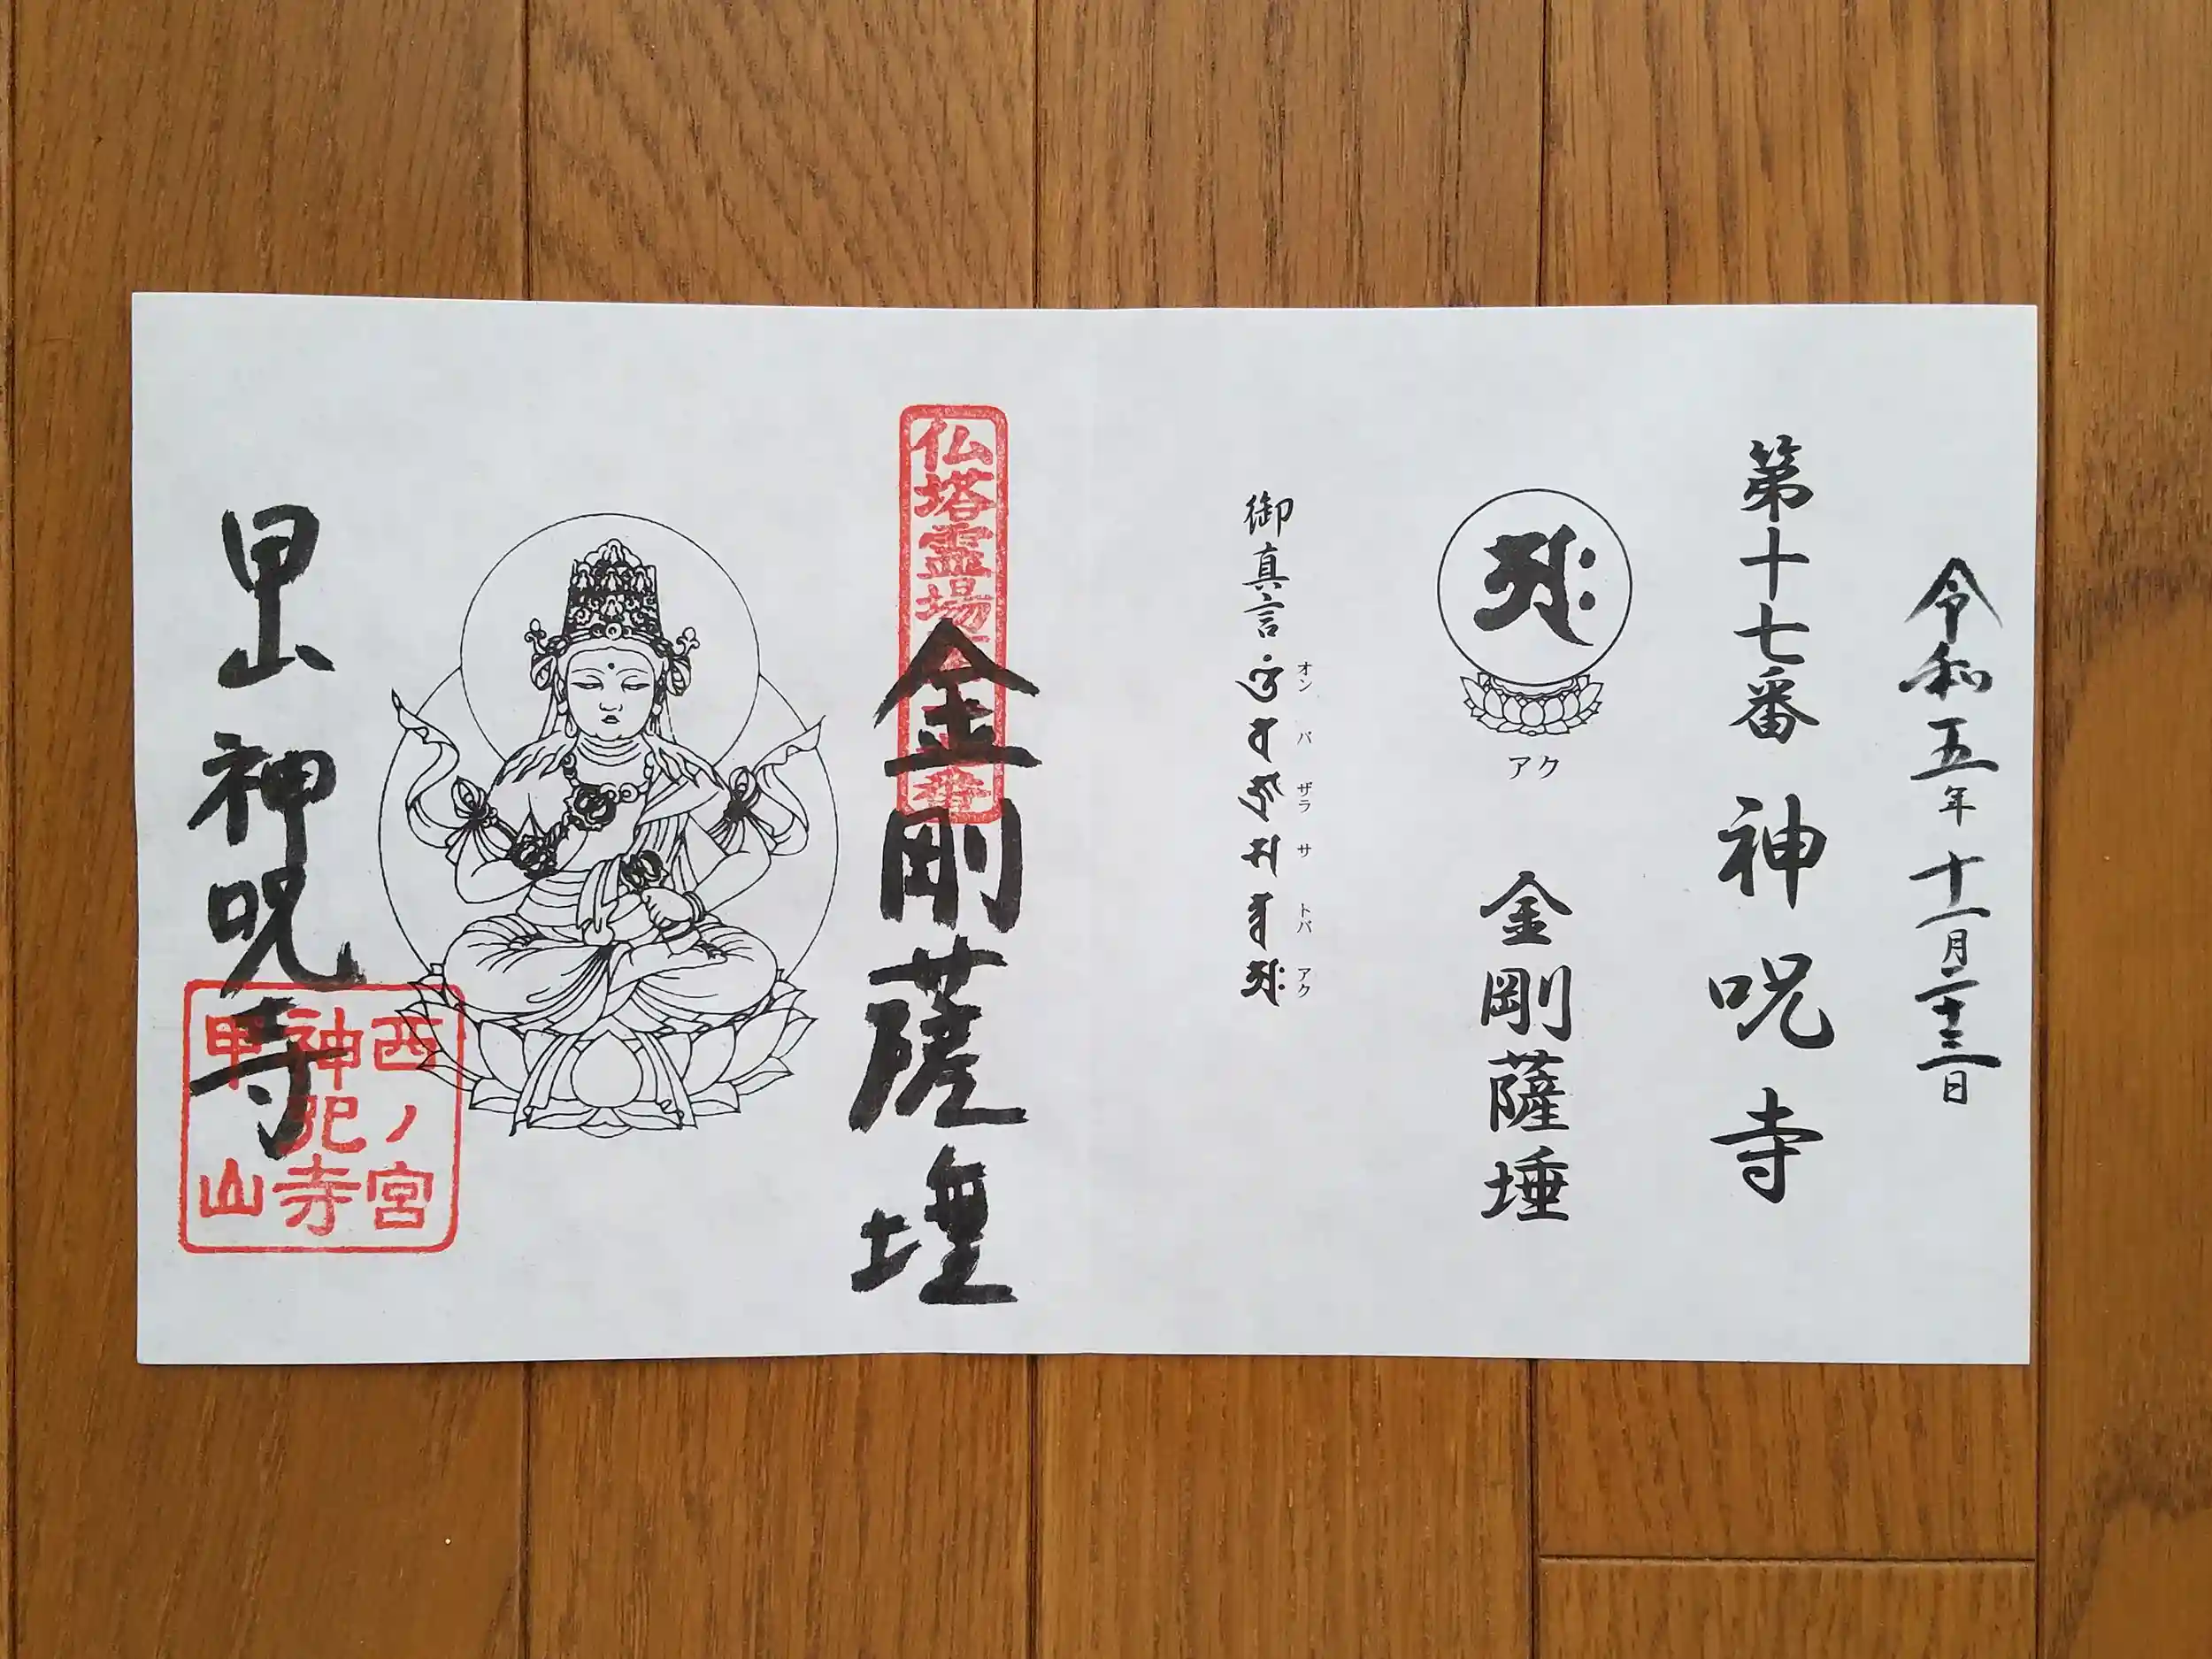 令和五年十一月二十三日
第十七番 神呪寺
アク
金剛薩埵
御真言
オン バ ザラ サ トバ アク
仏塔霊場
金剛薩埵
甲山 神呪寺
西ノ宮
神呪寺
甲山